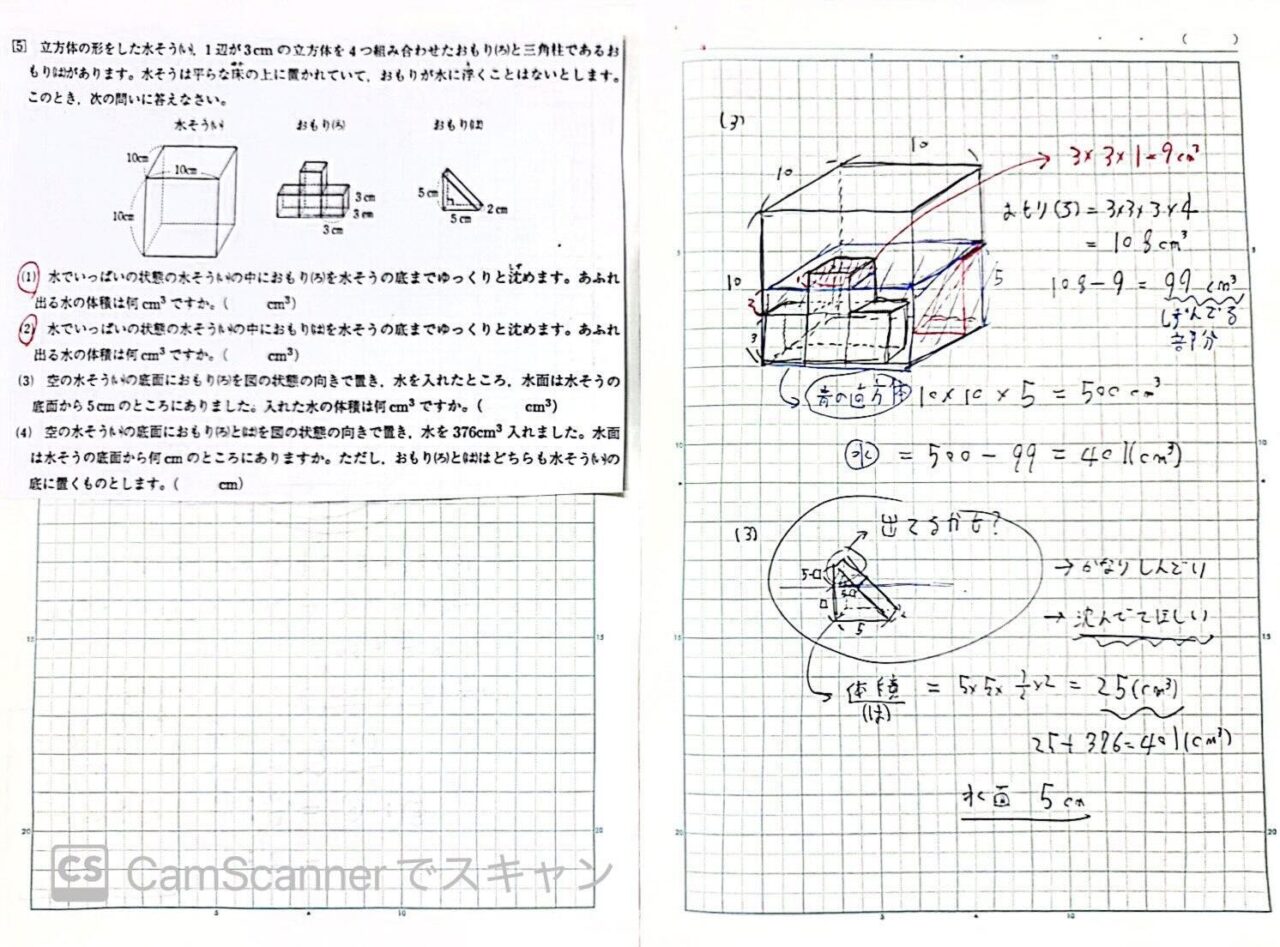 [5] 立方体の形をした水そう(い), 1辺が3cmの立方体を4つ組み合わせたおもり(ろ)と三角柱であるお
もり(は)があります。水そうは平らな床の上に置かれていて，おもりが水に浮くことはないとします。
このとき，次の問いに答えなさい。
水そう(い) おもり(ろ) おもり(は)
10cm
10cm
10cm
3cm
3cm
3cm
5cm
5cm
2cm
(1) 水でいっぱいの状態の水そう(い)の中におもり(ろ)を水そうの底までゆっくりと沈めます。あふれ
出る水の体積は何cm³ですか。( cm³)
(2) 水でいっぱいの状態の水そう(い)の中におもり(は)を水そうの底までゆっくりと沈めます。あふれ
出る水の体積は何cm³ですか。( cm³)
(3) 空の水そう(い)の底面におもり(ろ)を図の状態の向きで置き，水を入れたところ，水面は水そうの
底面から5cmのところにありました。入れた水の体積は何cm³ですか。( cm³)
(4) 空の水そう(い)の底面におもり(ろ)と(は)を図の状態の向きで置き，水を376cm³入れました。水面
は水そうの底面から何cmのところにありますか。ただし，おもり(ろ)と(は)はどちらも水そう(い)の
底に置くものとします。( cm)
CS CamScannerでスキャン
(3)
10
10
10
1
2
3
5
3×3×1=9cm³
おもり(ろ)=3×3×3×4
=108cm³
108-9=99cm³
沈んでる
部分
青の直方体 10×10×5=500cm³
水=500-99=401(cm³)
(3)
出てるかも?
5-□
□
5
2
→かなりしんどい
→沈んでてほしい
体積(は)=5×5×1/2×2=25(cm³)
25+376=401(cm³)
水面 5cm